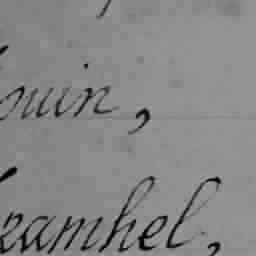 ouin,
zamhel,